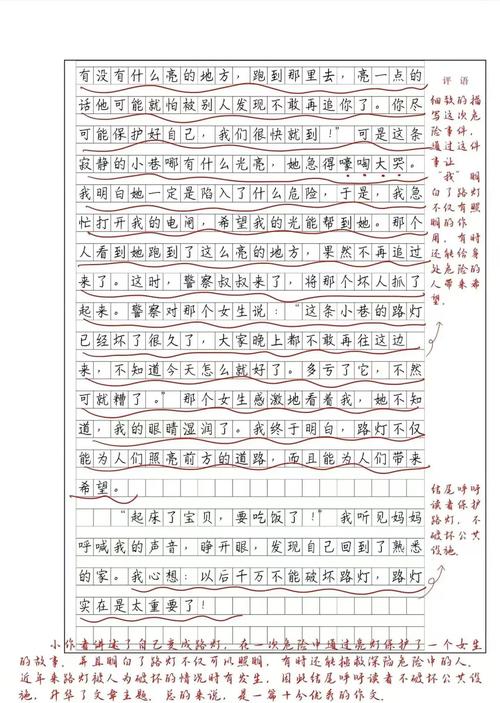 有没有什么亮的地方，跑到那里去，亮一点的
话他可能就怕被别人发现不敢再追你了。你尽
可能保护好自己，我们很快就到！”可是这条
寂静的小巷哪有什么光亮，她急得嚎啕大哭。
我明白她一定是陷入了什么危险，于是，我急
忙打开我的电闸，希望我的光能帮到她。那个
人看到她跑到了这么亮的地方，果然不再追过
来了。这时，警察叔叔来了，将那个坏人抓了
起来。警察对那个女生说：“这条小巷的路灯
已经坏了很久了，大家晚上都不敢再往这边
来，不知道今天怎么就好了。多亏了它，不然
可就糟了。”那个女生感激地看着我，她不知
道，我的眼睛湿润了。我终于明白，路灯不仅
能为人们照亮前方的道路，而且能为人们带来
希望。
“起床了宝贝，要吃饭了！”我听见妈妈
呼喊我的声音，睁开眼，发现自己回到了熟悉
的家。我心想：以后千万不能破坏路灯，路灯
实在是太重要了！
评语
细致的描
写这次危
险事件，
通过这件
事让
“我”明
白了路灯
不仅有照
明的作
用，有时
还能给身
处危险的
人带来希
望。
结尾呼吁
读者保护
路灯，不
破坏公共
设施。
小作者讲述了自己变成路灯，在一次危险中通过亮灯保护了一个女生
的故事，并且明白了路灯不仅可以照明，有时还能拯救深陷危险中的人。
近年来路灯被人为破坏的情况时有发生，因此结尾呼吁读者不破坏公共设
施，升华了文章主题。总的来说，是一篇十分优秀的作文。